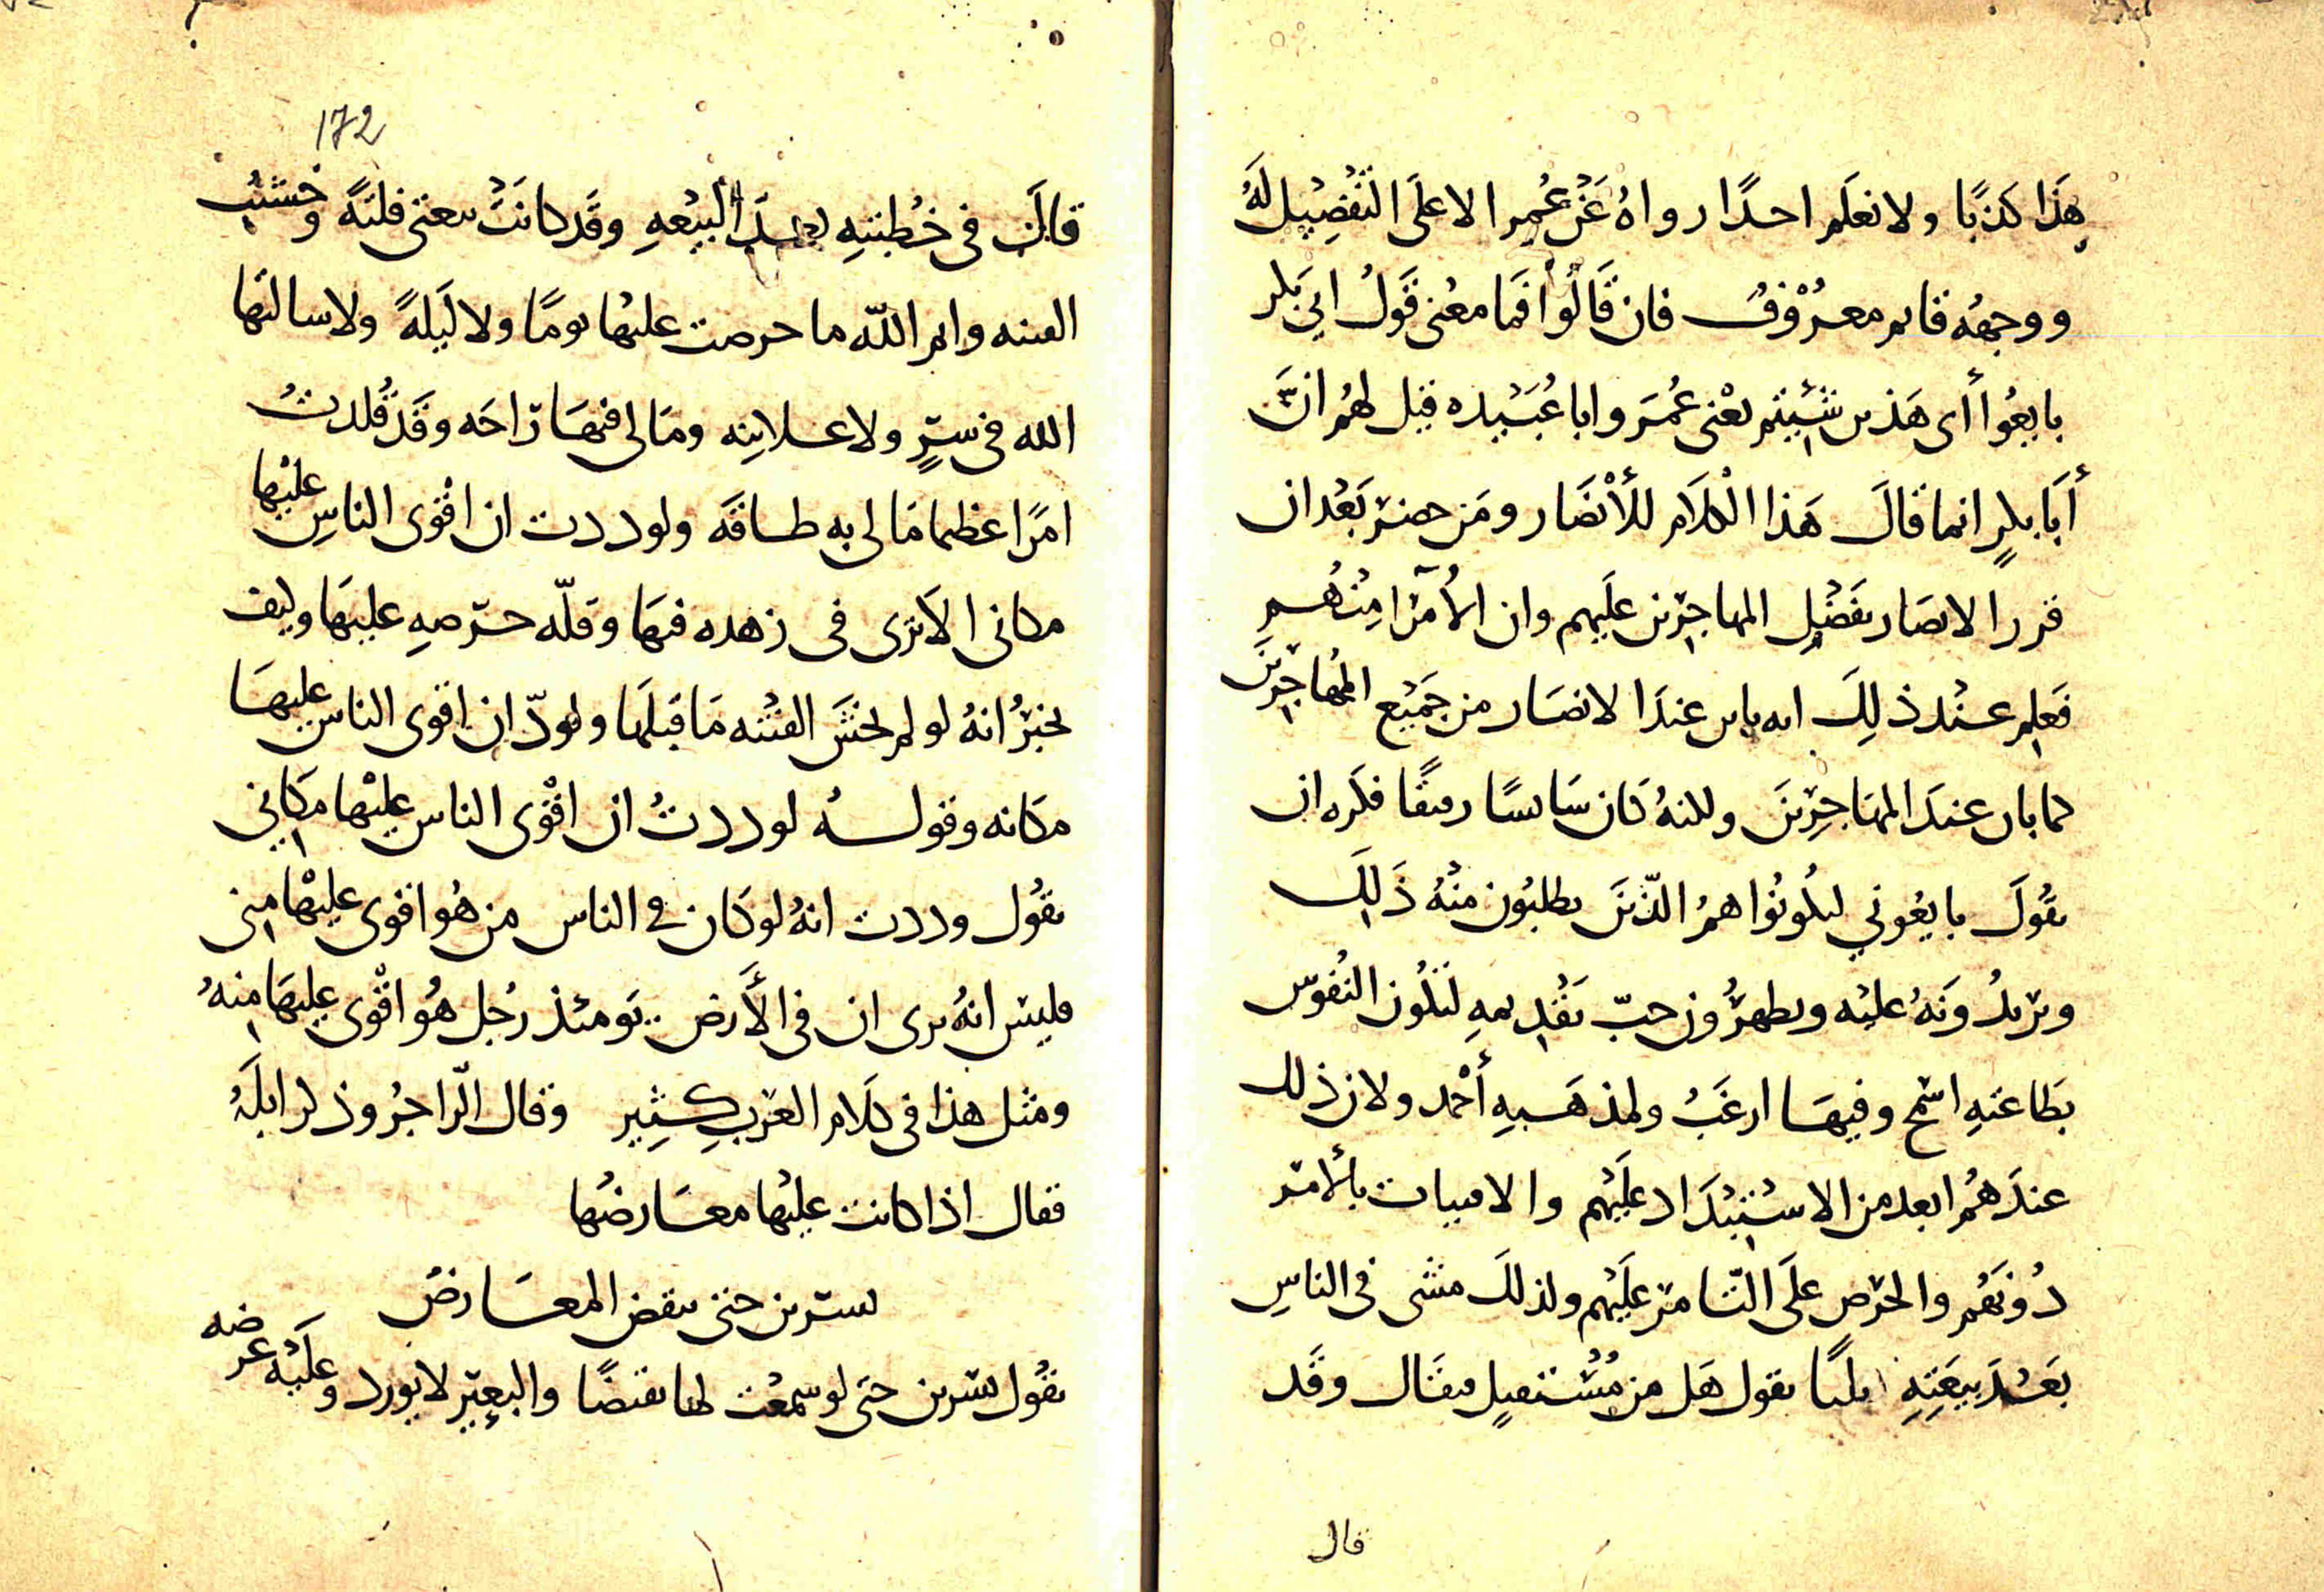 هَذَا كذبًا ولا نعلَم احدًا رواهُ عَنْ عُمر الا علَى التَفْضِيل لَهُ
ووجهُه قايم معرُوْفُ فان قَالُوْا فما معْنى قَولُ ابي بَكر
بايعُوا أى هَذين شئيتم يعْنى عُمَر وابا عُبَيْده قيل لهُم انَّ
أبَا بكرٍ انما قالَ هَذا الْكلَام للأنْصَار ومَن حضر بَعْد ان
قرر الانصَار بفَضْل المهاجرين علَيهم وان الأُمَرَآ مِنْهُم
فَعلم عنْد ذلِكَ انه باين عندَ الانصَار من جَمِيْع المُهاجِرِيْنَ
كما بان عندَ المهَاجِرِينَ ولكنهُ كَان سَايسًا رفيقًا فكَره ان
يقُولَ بايعُوني ليكُونُوا همُ الذّينَ يطلبُون منْهُ ذَلِكَ
ويريدُونَهُ عليْه ويظهرُون حبّ تقْديمهِ لتكُون النُفوس
بطَاعتهِ اسمح وفيهَا ارغَبُ ولمذهَبهِ أحْمد ولان ذلك
عندَهُم ابعد من الاسْتبْدَاد علَيْهم والافتيات بالأمر
دُونَهُم والحرْص علَى التّامر علَيْهم ولذلكَ مشَى فى الناسِ
بَعْدَ بيعَتِهِ ثلثًا يقول هَل من مُسْتقيلٍ فيقَال وقَد
قال
172
قالَ فى خُطبتهِ بعدَ البيْعهِ وقَد كانَتْ بيعتى فلتهً وخشيْتُ
الفتنه وايم اللّه ما حرصت عليْها يومًا ولا لَيلهً ولا سالتُها
الله فى سرٍّ ولا علانِيه ومَا لى فيهَا رَاحَه وقَدْ قُلدتُ
امْرًا عظيما مَا لى به طاقَه ولوددت ان اقْوى الناسِ عليْها
مكانى الا تَرى فى زهده فيهَا وقلّه حرْصهِ عليهَا وكيف
يخبْرُ انهُ لو لم يخشَ الفتْنه مَا قبلَها ولودّ ان اقوى الناس عليهَا
مكَانه وقولهُ لوددتُ ان اقْوى الناس عليْها مكَاني
يقُول وددت انهُ لو كَان في الناس من هُو اقوى عليْها منى
فليس انهُ يرى ان فى الأَرض يَومئذ رُجل هُو اقْوى عليهَا منهُ
ومثل هذا فى كلَام العَرب كثِير وقال الرّاجزُ وذكر ابلَهُ
فقال اذا كانت عليْها معَارضُها
تسترين حتى ينقض المعَارضُ
يقُول تسرين حتى لو سمعْت لها نقيضًا والبعيْر لا يورد وعليْه عرضه